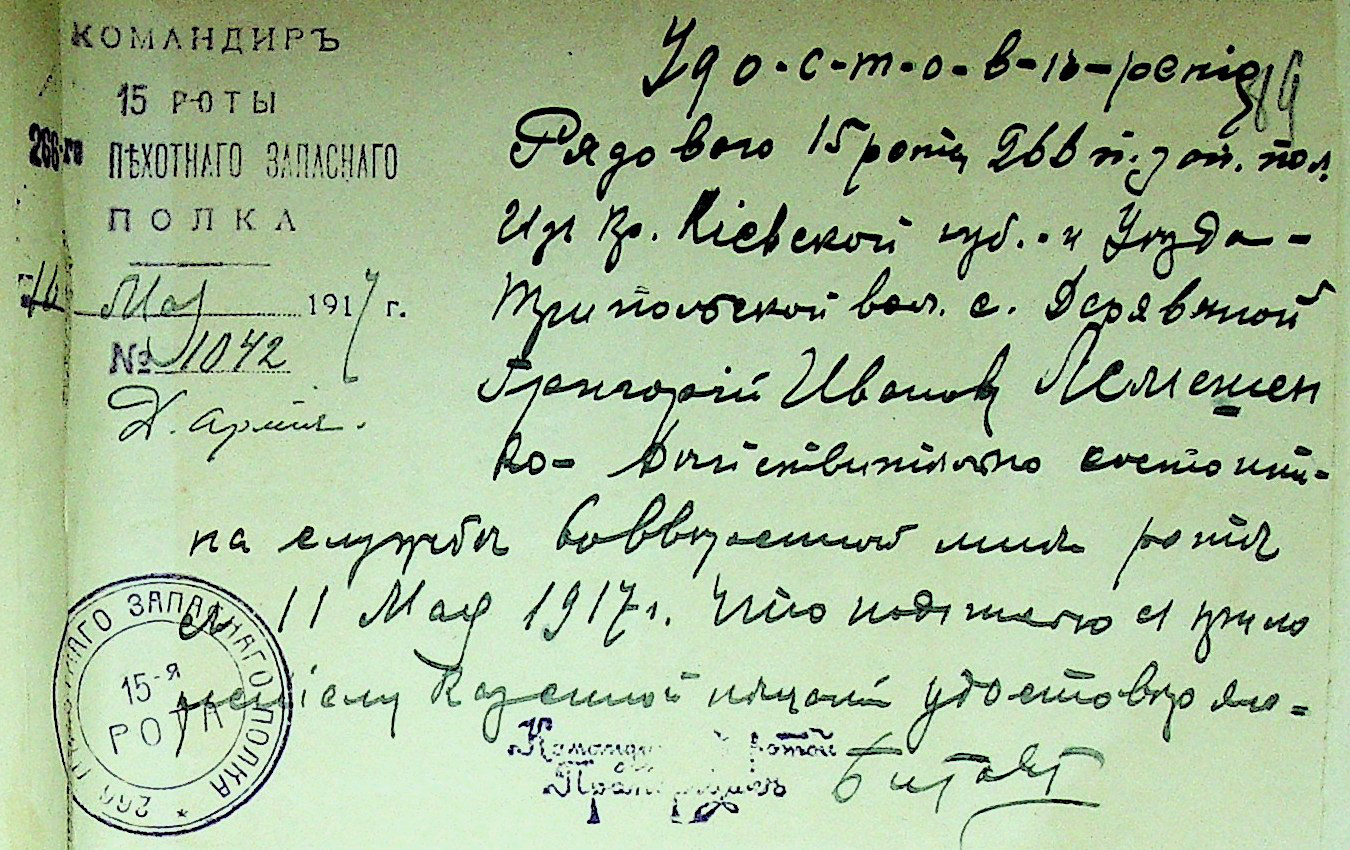 КОМАНДИРЪ
15 РОТЫ
266-го ПѢХОТНАГО ЗАПАСНАГО
ПОЛКА
Мая 1917 г.
№ 1042
Д. армія.
Удо-с-т-о-в-ѣ-реніе
Рядового 15 роты 266 п. зап. пол.
Изъ кр. Кіевской губ. и Уѣзда-
Трипольской вол. с. Деревяной
Григорій Ивановъ Лемешен
ко- дѣйствительно состоитъ-
на службѣ во ввѣренной мнѣ ротѣ
съ 11 Мая 1917 г. Что подписью и прило
женіемъ Казенной печати удостовѣряю-
Командующій ротой
Прапорщикъ
15-я
РОТА
ЗАПАСНАГО ПОЛКА